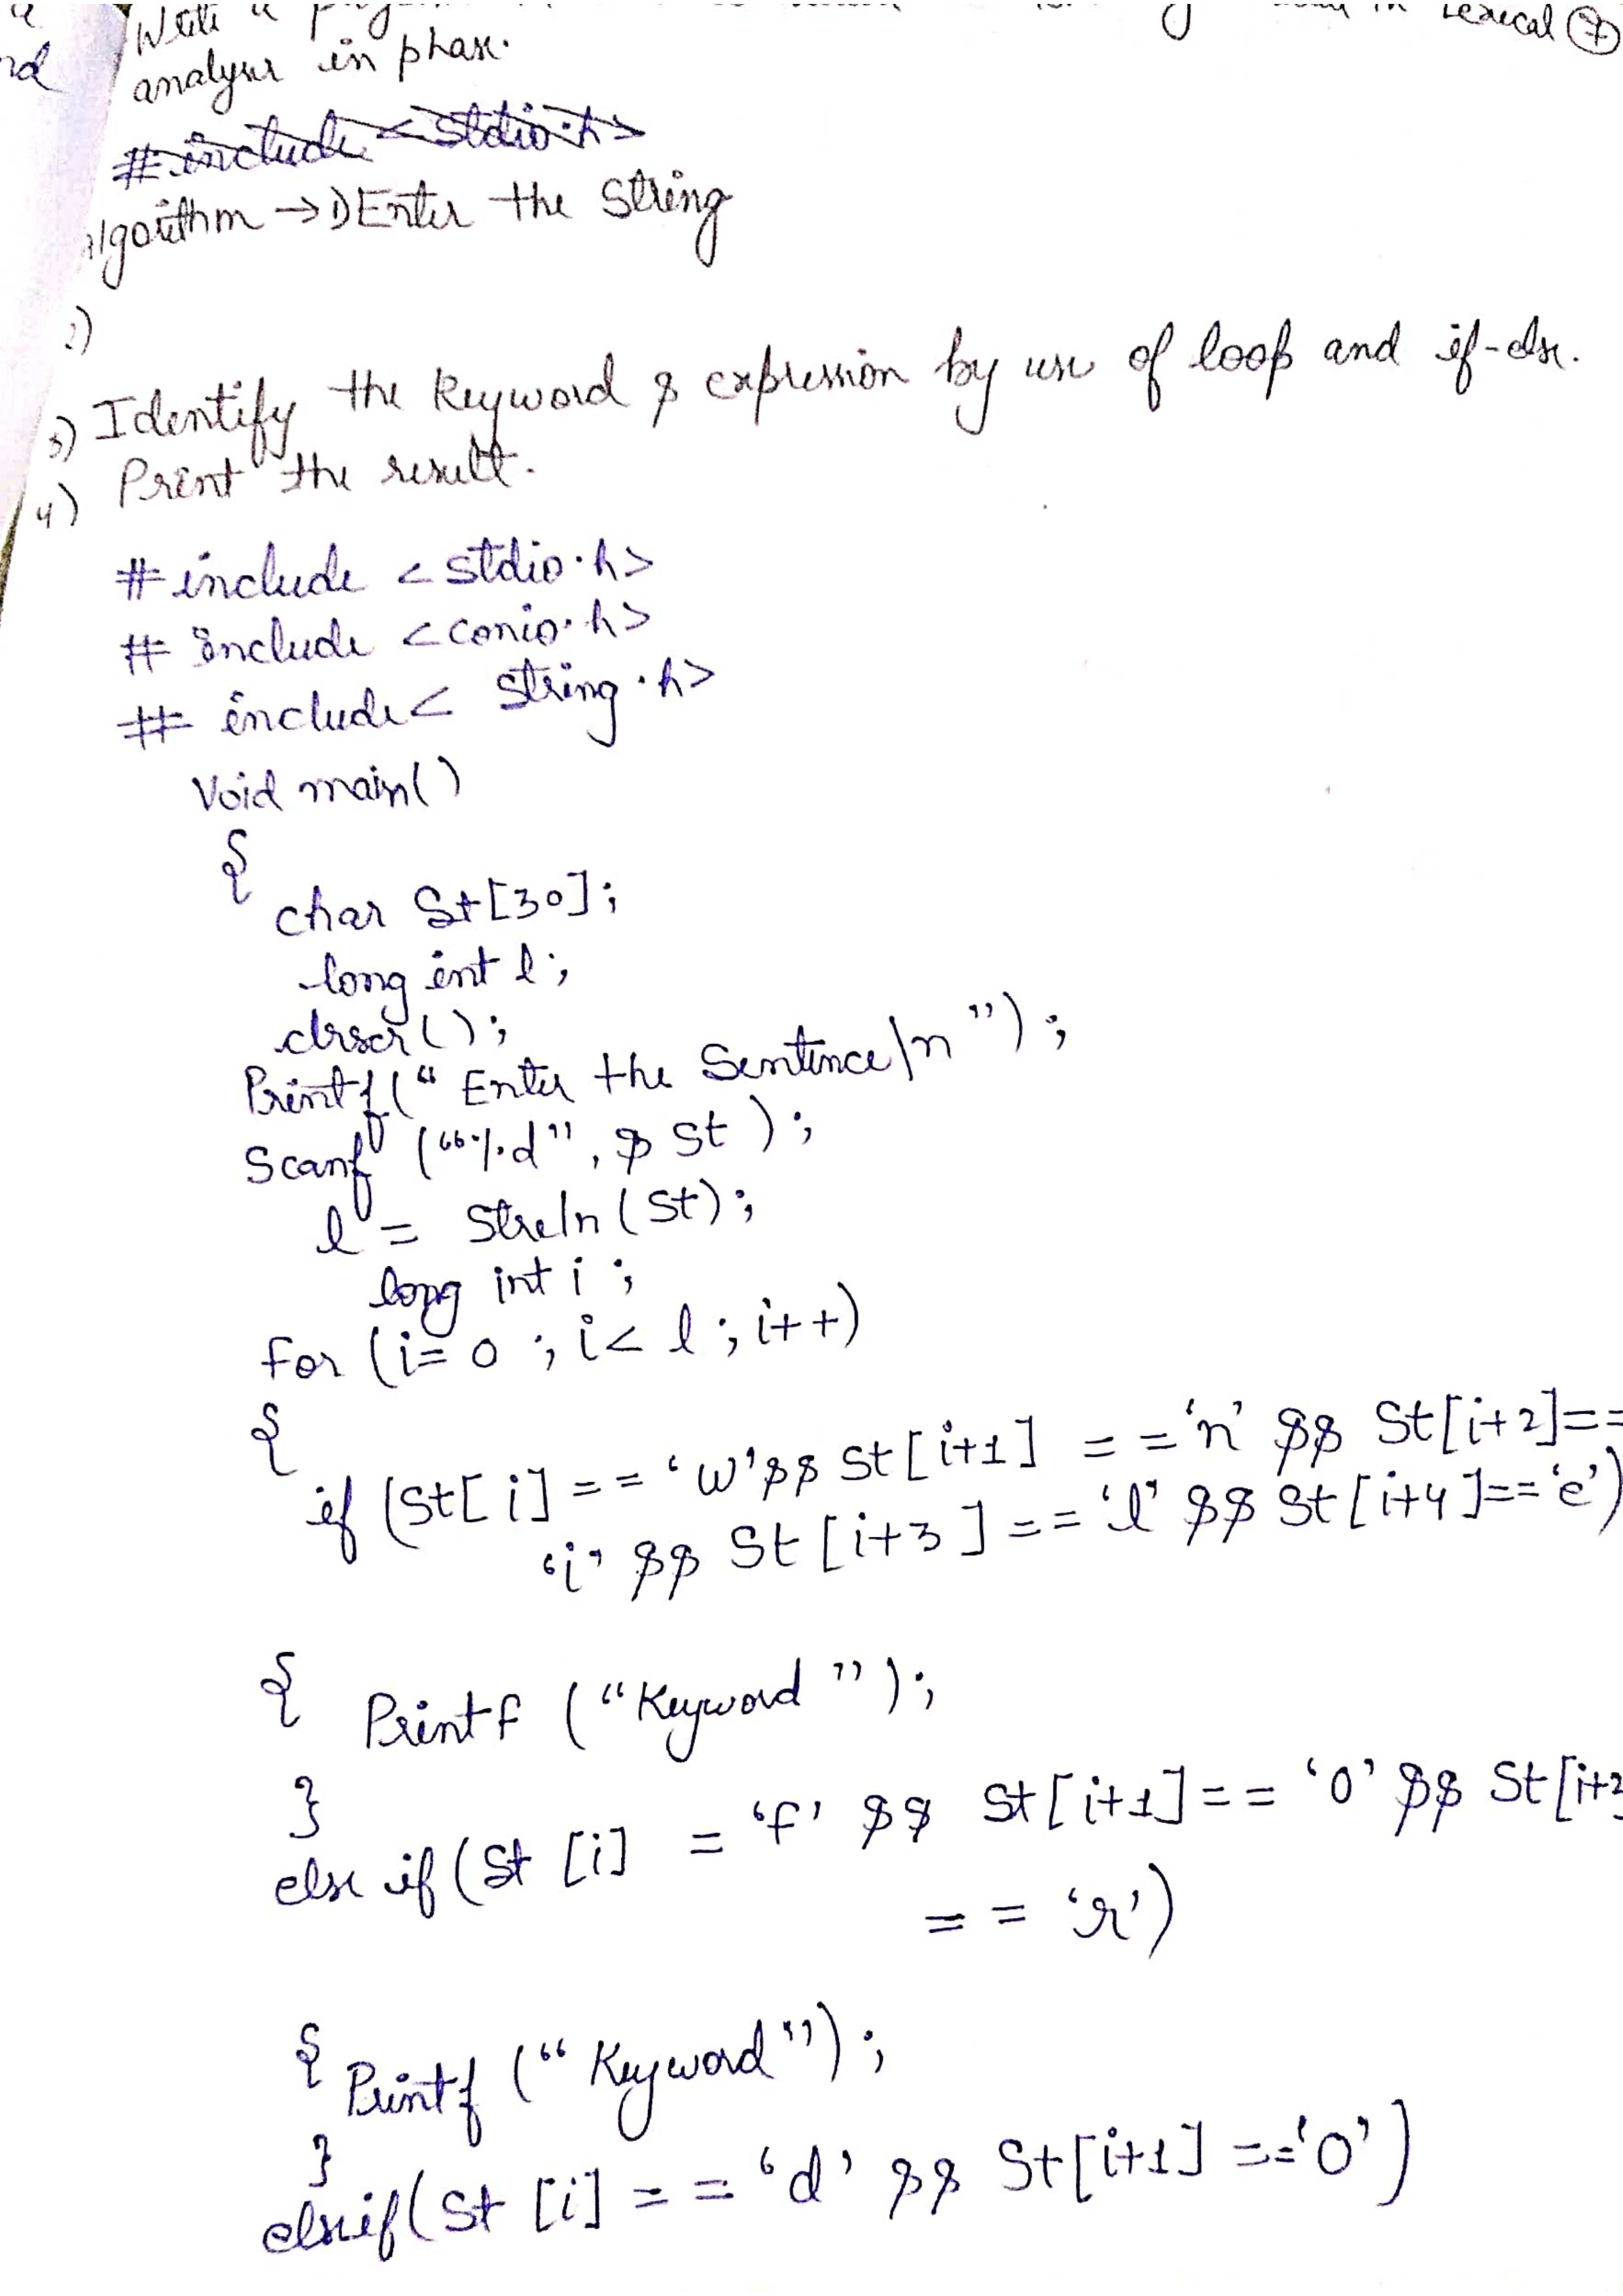 Write a
lexical 7
analyser in phase.
#include <stdio.h>
Algorithm → 1) Enter the String
2)
3) Identify the keyword & expression by use of loop and if-else.
4) Print the result.
# include < stdio.h>
# include <conio.h>
# include < string.h>
Void main()
{
char St[30];
long int l;
clrscr();
Printf(" Enter the Sentence\n ");
Scanf ("%d", & St );
l = Streln (St);
long int i ;
for (i= 0 ; i< l ; i++)
{
if (St[i] == 'w' && St[i+1] == 'n' && St[i+2]==
'i' && St [i+3 ] == 'l' && St [i+4]=='e')
{ Printf ("Keyword ");
}
else if (St [i] = 'f' && St[i+1]== '0' && St[i+2
== 'r')
{ Printf ("Keyword");
}
elseif(St [i] == 'd' && St[i+1] =='0')